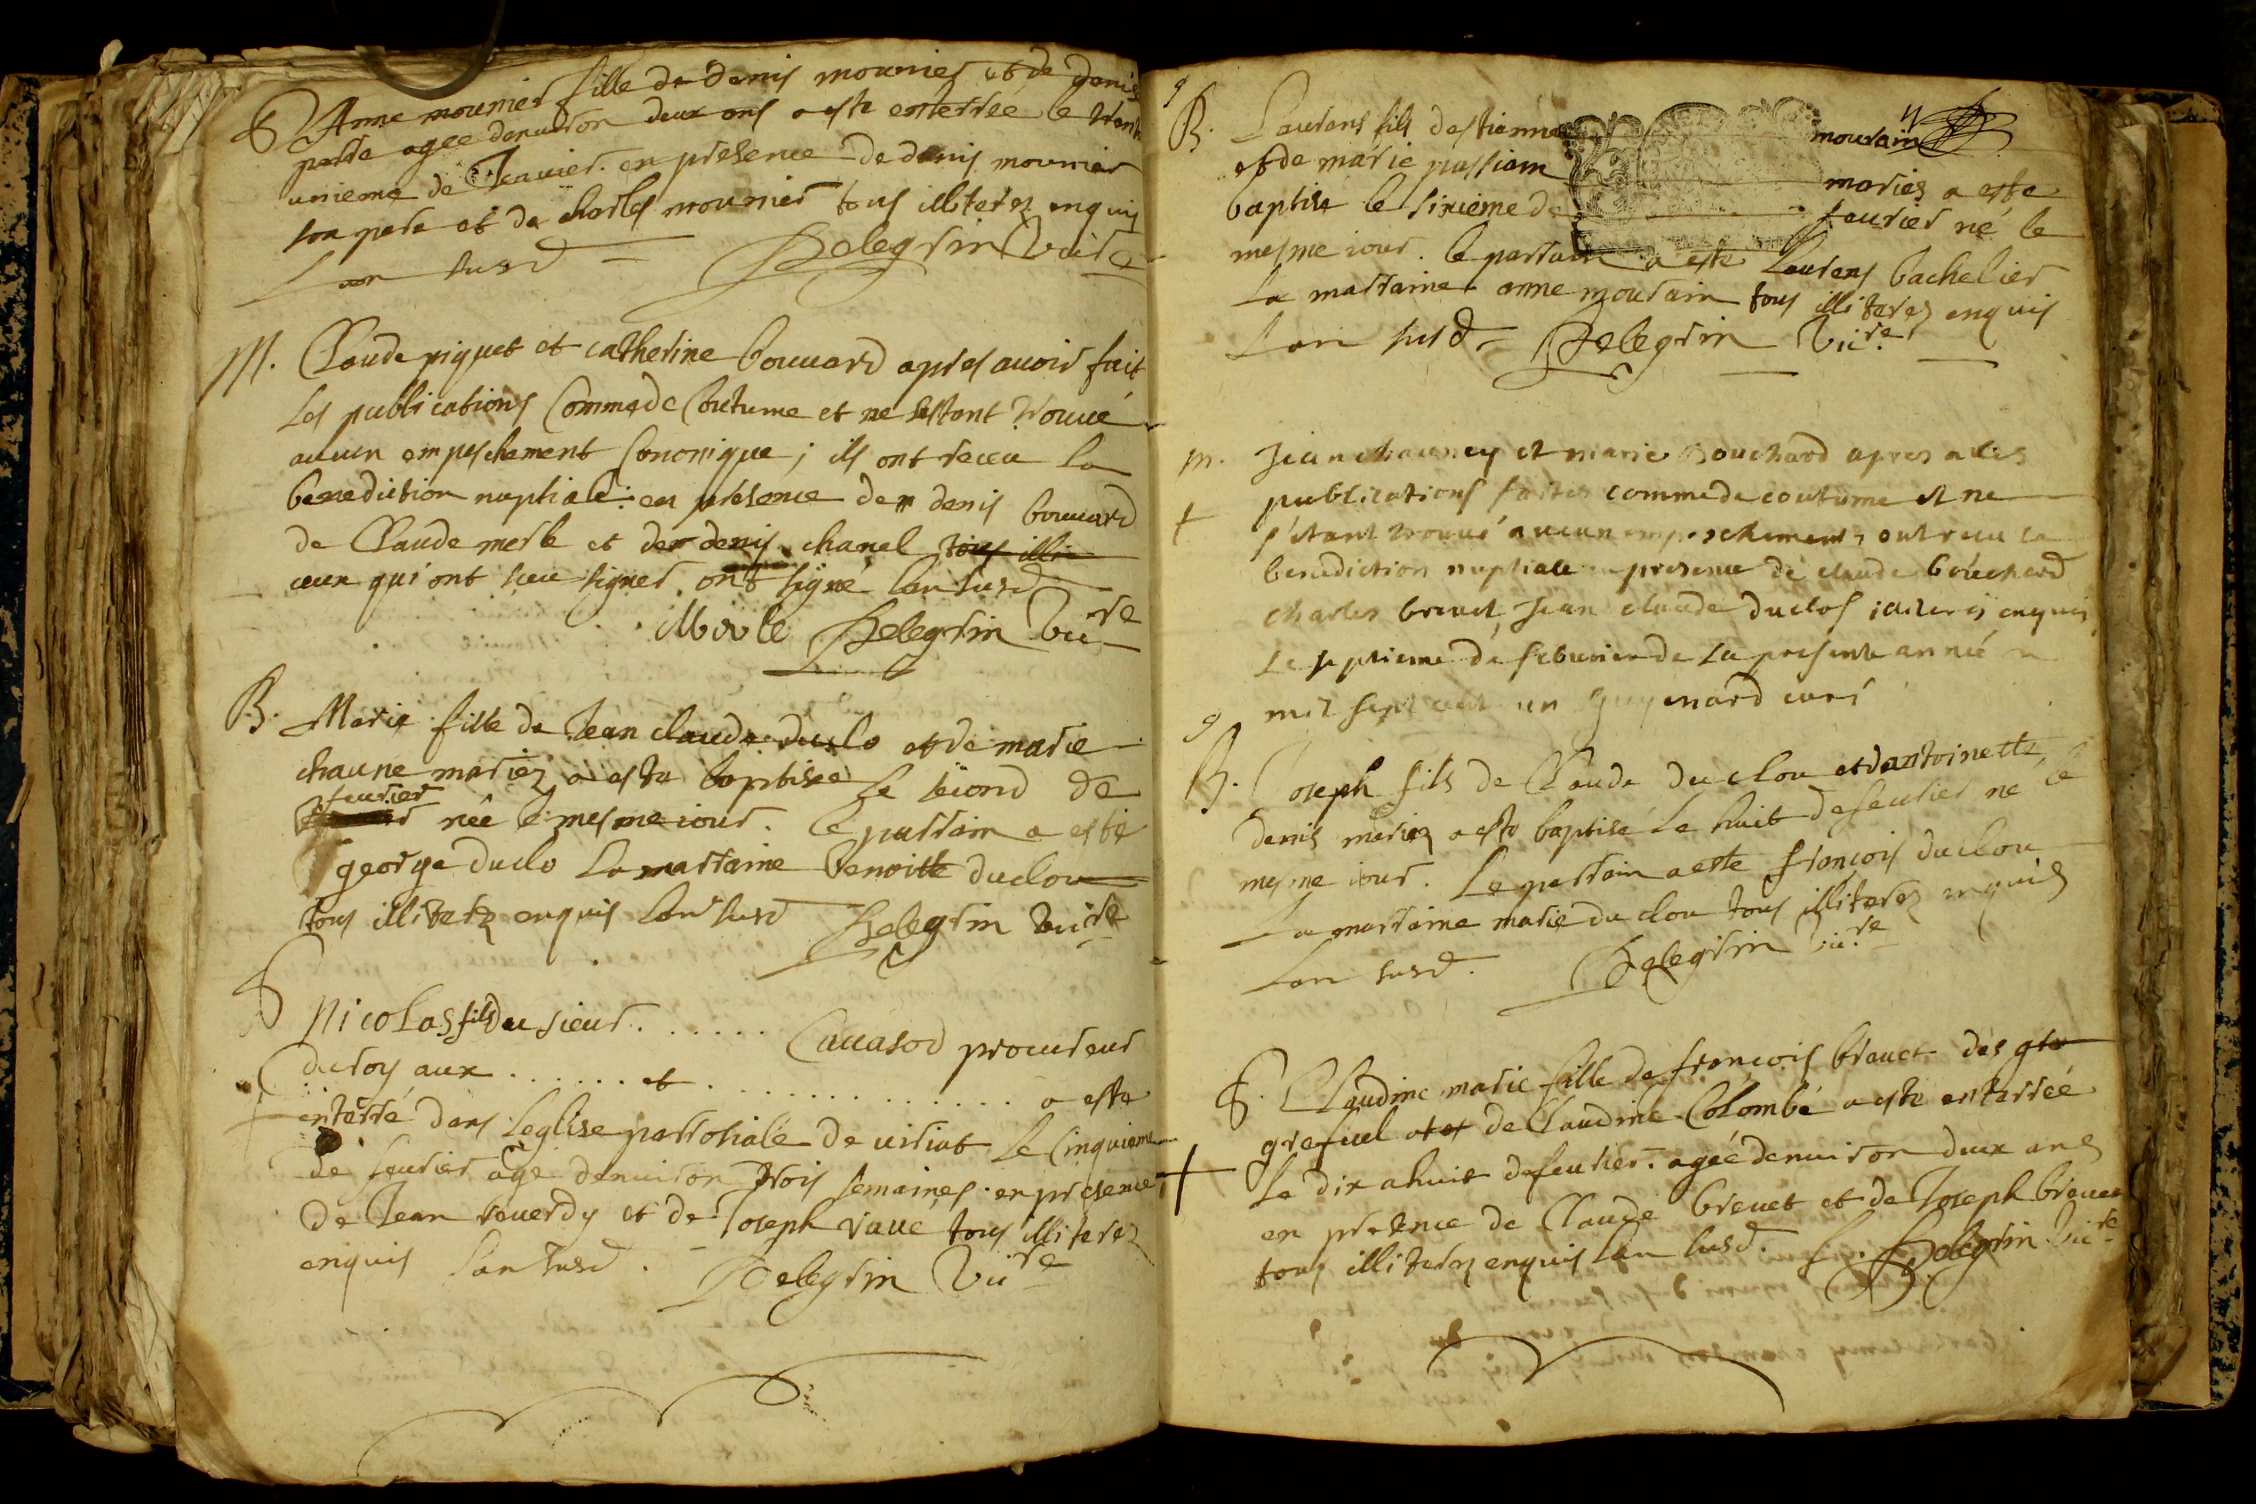 S Anne mounier fille de denis mounier et de denis
perra agee denuiron deux ans a esté enterrée le trente
unieme de Ianuier. en presence de denis mounier
son pere et de charles mounier tous illiterez enquis
L'an susd Pelegrin Vicre
M. Claude piquet et catherine bouuard apres auoir fait
les publications Comme de Coutume et ne sestant trouué
aucun empeschement Cononique ; ils ont receu la
benediction nuptiale: en présence de denis bouuard
de Claude merle et de denis chanel tous illi
ceux qui ont sceu signer ont signé l'an susd
Merle Pelegrin Vicre
B. Marie fille de Iean claude duclo et de marie
chaune mariez a esté baptisee le second de
feurier
née le mesme iour. le parrain a esté
george duclo la marraine benoitte duclou
tous illiterz enquis l'an susd Pelegrin Vicre
S Nicolas fils du sieur . . . . . . Cauasod procureur
du roy aux . . . . . . et . . . . . . . . . . . . . . a esté
enterré dans l'eglise parrochiale de uiriat le Cinquieme
de feurier âge denuiron trois semaines. en présence
de Iean reuerdy et de Ioseph raué tous illiterez
enquis l'an susd. Pelegrin Vicre
9
B. Laurens fils destienne mourain
et de marie passiam mariez a esté
baptise le sixieme de feurier né le
mesme iour. le parrain a esté Laurens bachelier
la marraine anne mourain tous illiterez enquis
L'an susd. Pelegrin Vicre
M. Jean chauney et marie bouchard apres a les
publications faites comme de coutume et ne
s'etant trouué aucun empeschement, ont receu la
benediction nuptiale en presence de claude bouchard
charles breuet, Jean claude duclos enquis
Le septieme de feburier de la presente année
mil sept cent un Guyenard curé
9
B. Ioseph fils de Claude du clou et dantoinette
denis mariez a esté baptisé le huit de feurier né le
mesme iour. Le parrain a esté françois du clou
La marraine marie du clou tous illiterez enquis
L'an susd. Pelegrin Vicre
S. Claudine marie fille de françois breuet des
grefuel et de Claudine Colombe a esté enterrée
le dix ahuit de feurier. agée denuiron deux ans
en presence de Claude breuet et de Ioseph breuet
tous illiterez enquis l'an susd. Pelegrin Vicre